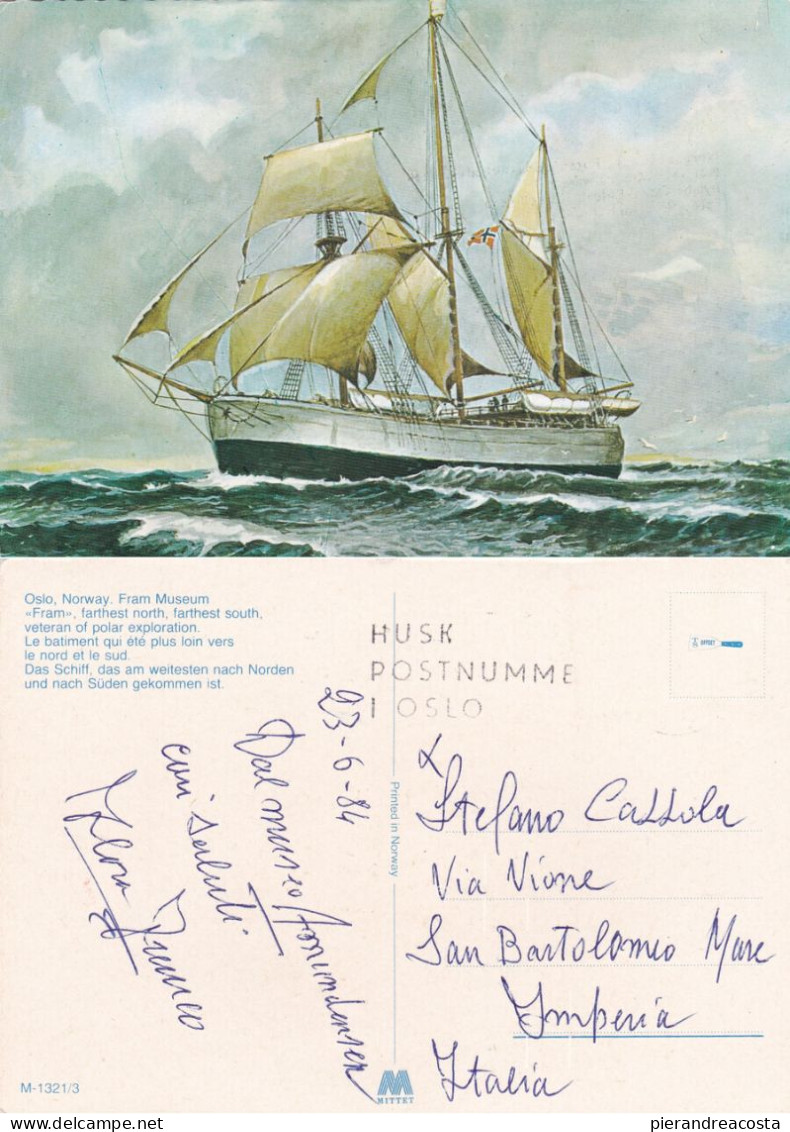 Oslo, Norway. Fram Museum
«Fram», farthest north, farthest south,
veteran of polar exploration.
Le batiment qui été plus loin vers
le nord et le sud.
Das Schiff, das am weitesten nach Norden
und nach Süden gekommen ist.
HUSK
POSTNUMME
I OSLO
OFFSET
23-6-84
Dal museo Amundensen
con i saluti
Franco
Printed in Norway
Stefano Cazzola
Via Vione
San Bartolomeo Mare
Imperia
Italia
M-1321/3
MITTET
delcampe.net
pierandreacosta